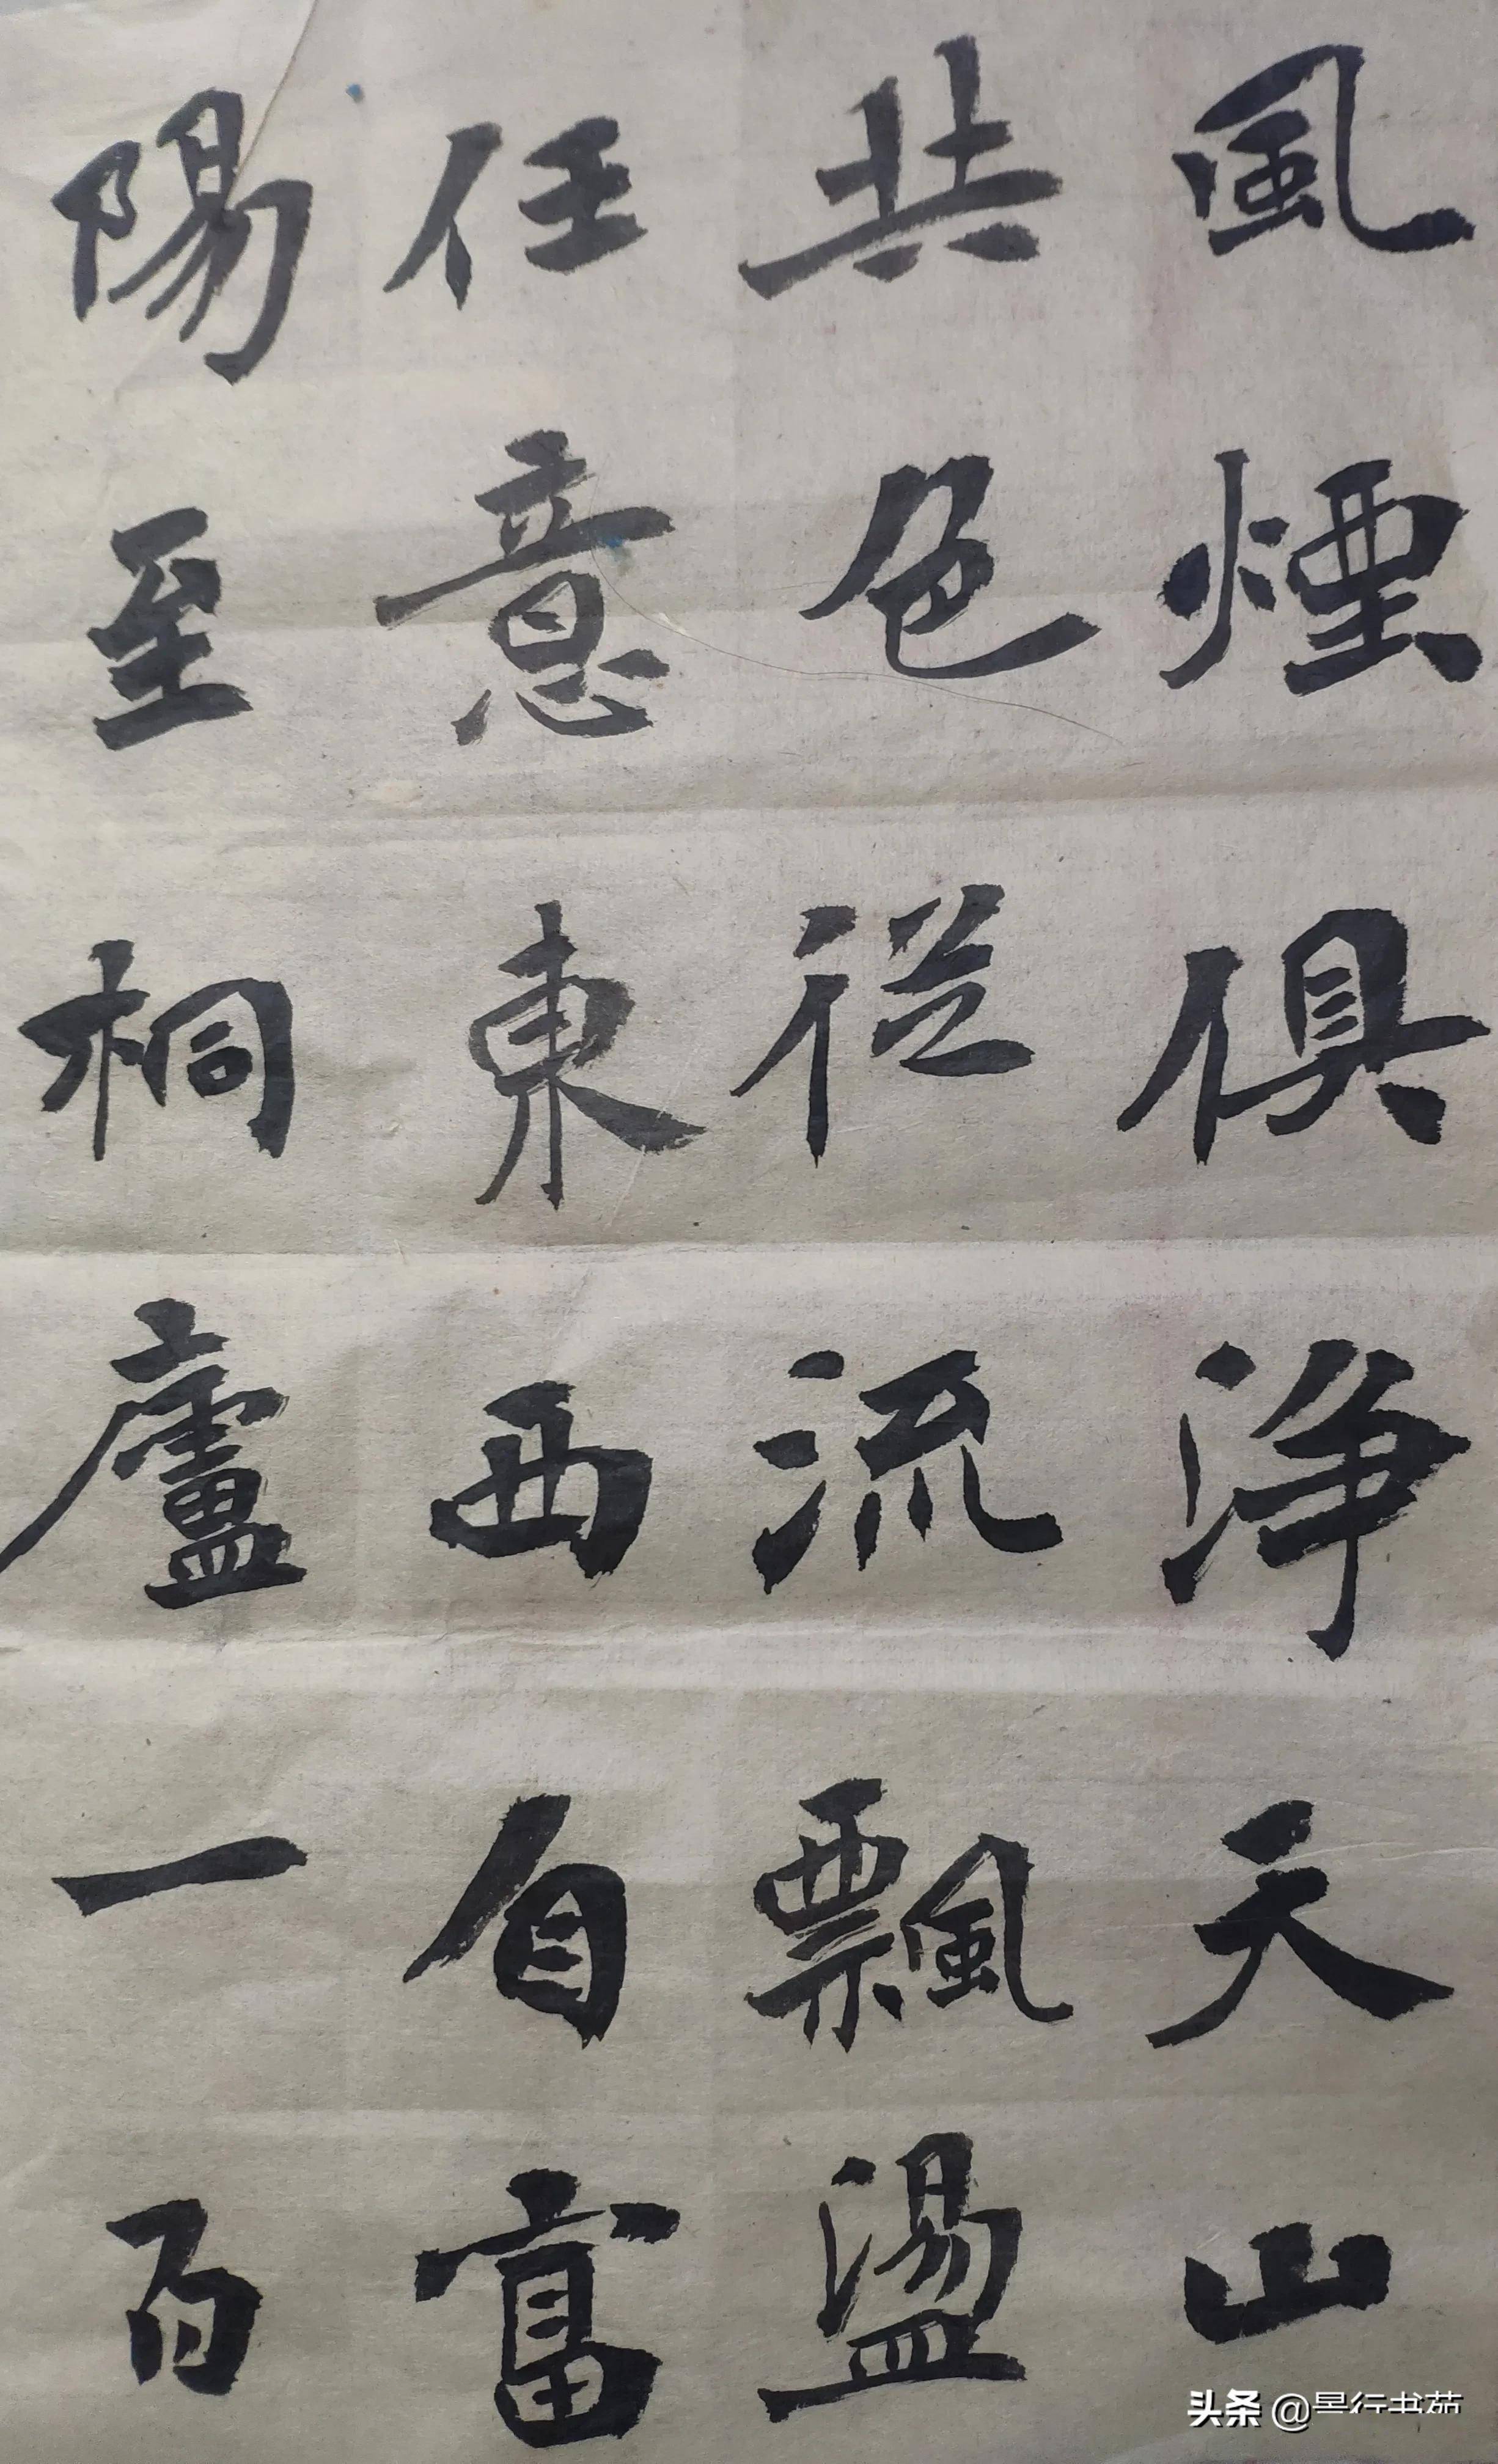 風煙俱淨天山
共色從流飄盪
任意東西自富
陽至桐廬一百
头条 @景行书苑